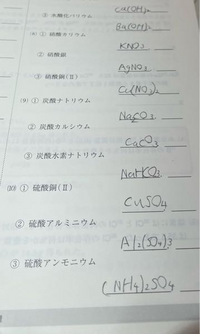 Ca(OH)₂
② 水酸化バリウム Ba(OH)₂
(8) ① 硝酸カリウム KNO₃
② 硝酸銀 AgNO₃
③ 硝酸銅(II) Cu(NO₃)₂
(9) ① 炭酸ナトリウム Na₂CO₃
② 炭酸カルシウム CaCO₃
③ 炭酸水素ナトリウム NaHCO₃
(10) ① 硫酸銅(II) CuSO₄
② 硫酸アルミニウム Al₂(SO₄)₃
③ 硫酸アンモニウム (NH₄)₂SO₄